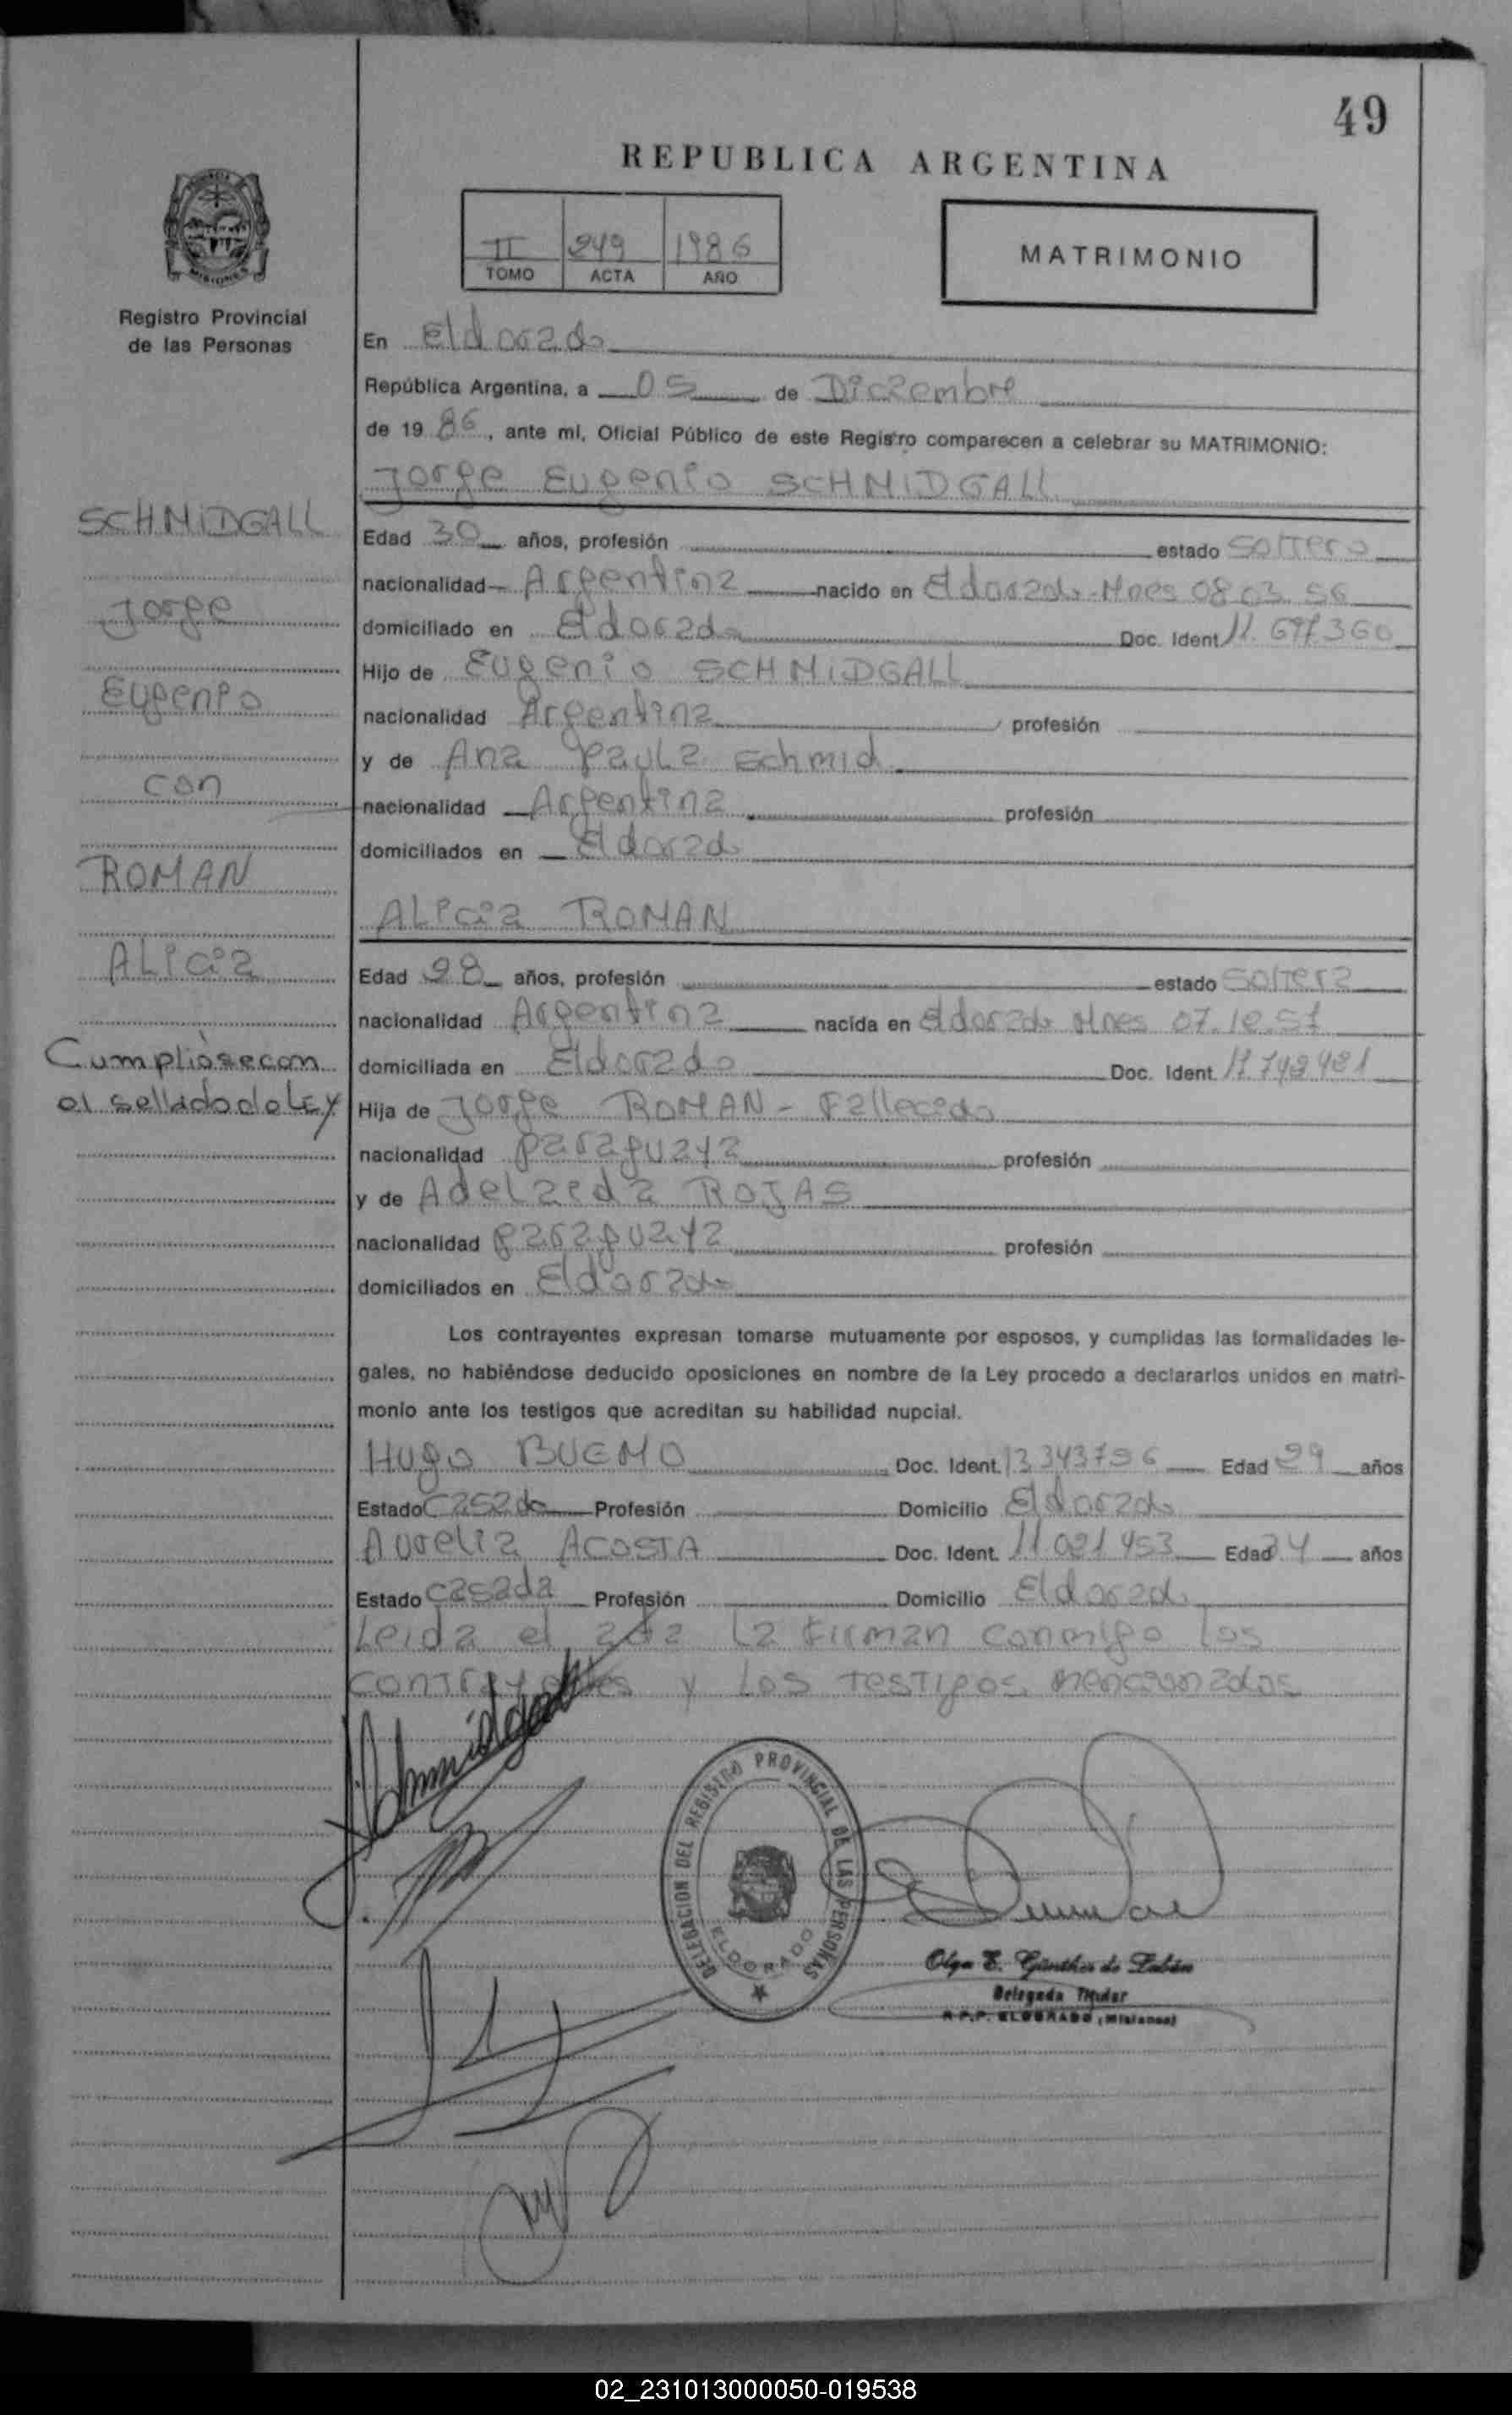 49
REPUBLICA ARGENTINA
II 249 1986
TOMO ACTA AÑO
MATRIMONIO
Registro Provincial
de las Personas
En Eldorado
República Argentina, a 05 de Diciembre
de 19 86, ante mí, Oficial Público de este Registro comparecen a celebrar su MATRIMONIO:
Jorge Eugenio SCHMIDGALL
SCHMIDGALL
Jorge
Eugenio
con
ROMAN
ALicia
Cumplióse con
el sellado de Ley
Edad 30 años, profesión estado soltero
nacionalidad Argentina nacido en Eldorado-Mnes 08 03 56
domiciliado en Eldorado Doc. Ident. 11.697360
Hijo de Eugenio SCHMIDGALL
nacionalidad Argentina profesión
y de Ana Paula Schmid
nacionalidad Argentina profesión
domiciliados en Eldorado
ALicia ROMAN
Edad 28 años, profesión estado soltera
nacionalidad Argentina nacida en Eldorado Mnes 07.10.57
domiciliada en Eldorado Doc. Ident.
Hija de Jorge ROMAN - Fallecido
nacionalidad paraguaya profesión
y de Adelaida ROJAS
nacionalidad paraguaya profesión
domiciliados en Eldorado
Los contrayentes expresan tomarse mutuamente por esposos, y cumplidas las formalidades le-
gales, no habiéndose deducido oposiciones en nombre de la Ley procedo a declararlos unidos en matri-
monio ante los testigos que acreditan su habilidad nupcial.
Hugo BUEMO Doc. Ident. 13 343796 Edad 29 años
Estado casado Profesión Domicilio Eldorado
Aurelia ACOSTA Doc. Ident. 11 021 453 Edad 34 años
Estado casada Profesión Domicilio Eldorado
Leida el acta La Firman conmigo los
contrayentes y Los testigos mencionados
DELEGACION DEL REGISTRO PROVINCIAL DE LAS PERSONAS
ELDORADO
Olga E. Günther de Labán
Delegada Titular
R.P.P. ELDORADO (Misiones)
02_231013000050-019538